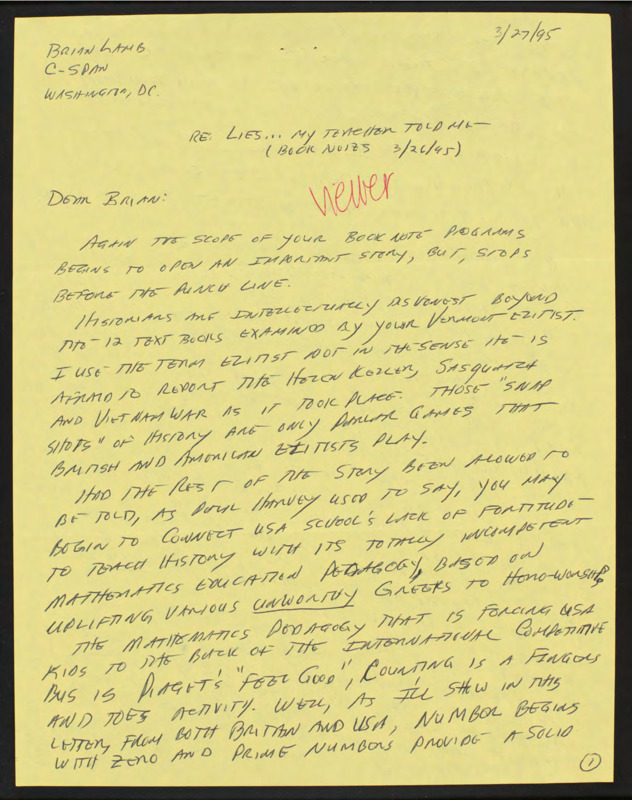 3/27/95
BRIAN LAMB
C-SPAN
WASHINGTON, DC.
RE: LIES... MY TEACHER TOLD ME
(BOOK NOTES 3/26/95)
viewer
DEAR BRIAN:
AGAIN THE SCOPE OF YOUR BOOK NOTE PROGRAMS
BEGINS TO OPEN AN IMPORTANT STORY, BUT, STOPS
BEFORE THE PUNCH LINE.
HISTORIANS ARE INTELLECTUALLY DISHONEST BEYOND
THE 12 TEXT BOOKS EXAMINED BY YOUR VERMONT ELITIST.
I USE THE TERM ELITIST NOT IN THE SENSE HE IS
AFRAID TO REPORT THE HELEN KELLER, SASQUATCH
AND VIETNAM WAR AS IT TOOK PLACE. THOSE "SNAP
SHOTS" OF HISTORY ARE ONLY PARLOR GAMES THAT
BRITISH AND AMERICAN ELITISTS PLAY.
HAD THE REST OF THE STORY BEEN ALOWED TO
BE TOLD, AS PAUL HARVEY USED TO SAY, YOU MAY
BEGIN TO CONNECT USA SCHOOL'S LACK OF FORTITUDE
TO TEACH HISTORY WITH ITS TOTALLY INCOMPETENT
MATHEMATICS EDUCATION PEDAGOGY, BASED ON
UPLIFTING VARIOUS UNWORTHY GREEKS TO HERO-WORSHIP.
THE MATHEMATICS PEDAGOGY THAT IS FORCING USA
KIDS TO THE BACK OF THE INTERNATIONAL COMPETITIVE
BUS IS PIAGET'S "FEEL GOOD", COUNTING IS A FINGERS
AND TOES ACTIVITY. WELL, AS I'LL SHOW IN THIS
LETTER, FROM BOTH BRITAIN AND USA, NUMBER BEGINS
WITH ZERO AND PRIME NUMBERS PROVIDE A SOLID
1